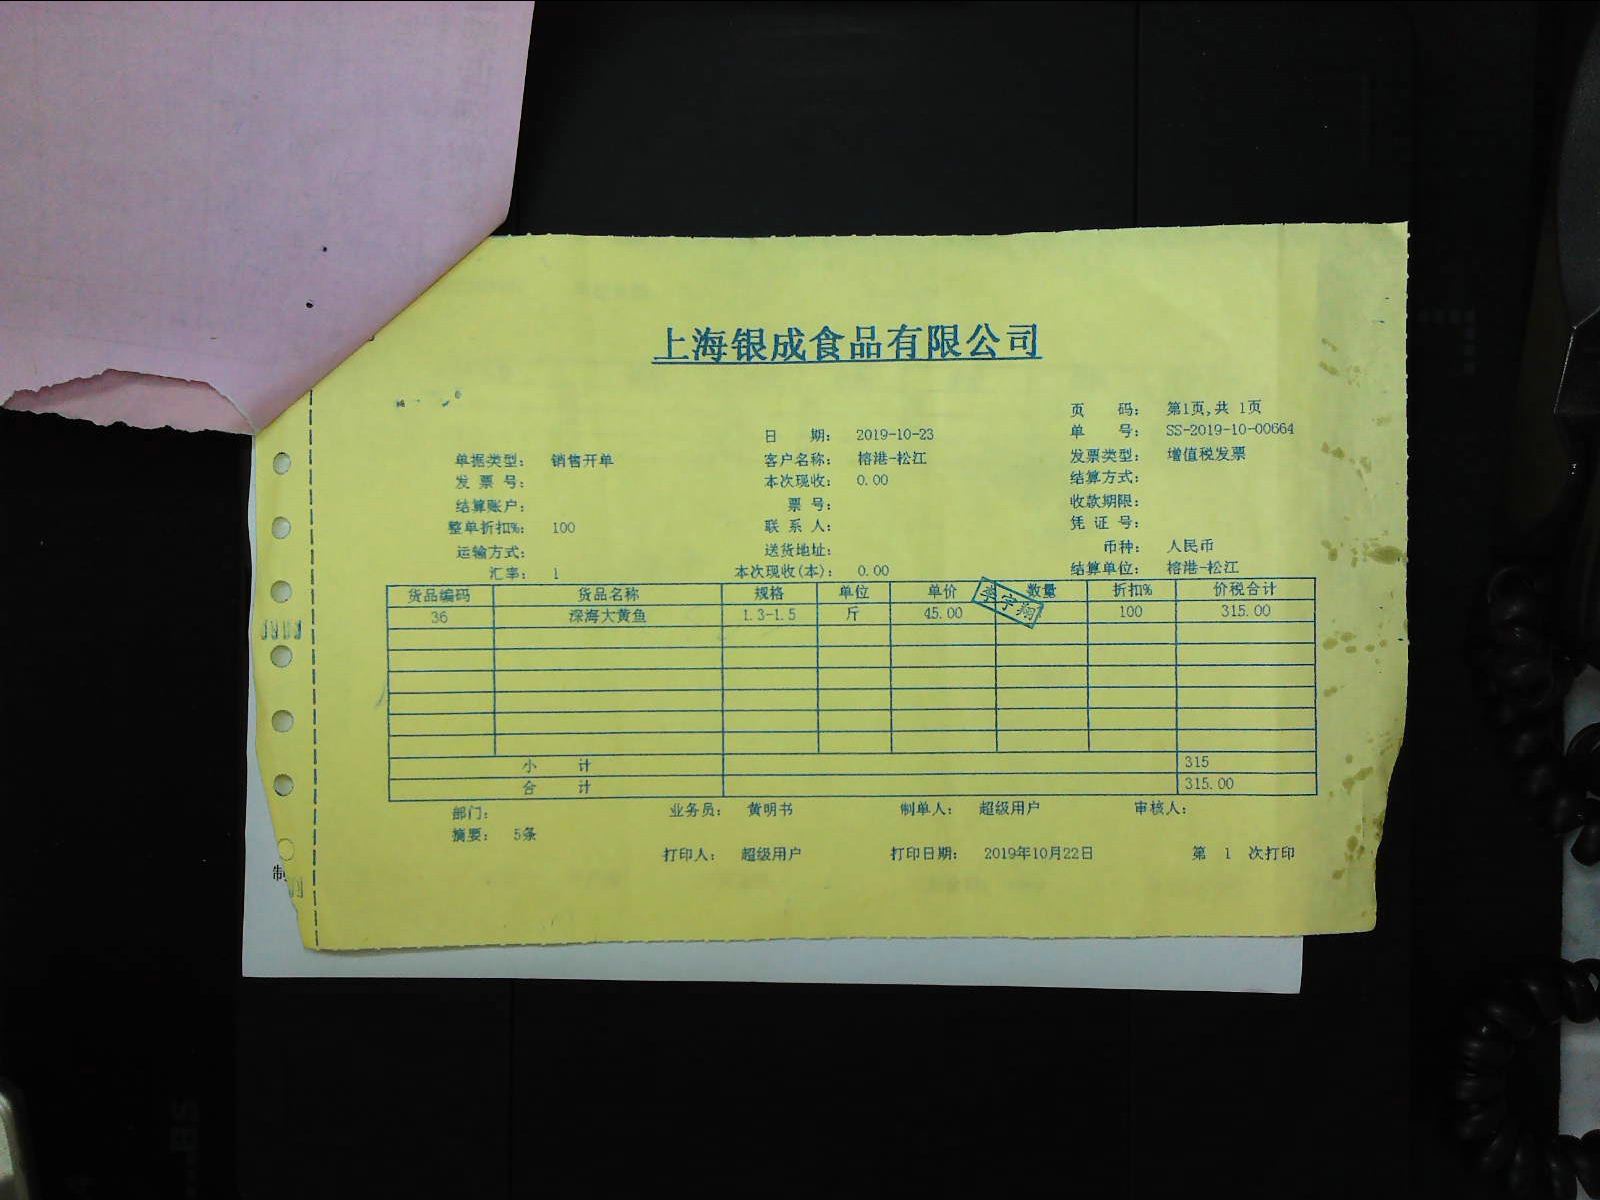 上海银成食品有限公司
页 码: 第1页,共 1页
日 期: 2019-10-23 单 号: SS-2019-10-00664
单据类型: 销售开单 客户名称: 榕港-松江 发票类型: 增值税发票
发 票 号: 本次现收: 0.00 结算方式:
结算账户: 票 号: 收款期限:
整单折扣%: 100 联 系 人: 凭 证 号:
运输方式: 送货地址: 币种: 人民币
汇率: 1 本次现收(本): 0.00 结算单位: 榕港-松江
货品编码 货品名称 规格 单位 单价 数量 折扣% 价税合计
36 深海大黄鱼 1.3-1.5 斤 45.00 100 315.00
李宇翔
小 计 315
合 计 315.00
部门: 业务员: 黄明书 制单人: 超级用户 审核人:
摘要: 5条
打印人: 超级用户 打印日期: 2019年10月22日 第 1 次打印
制